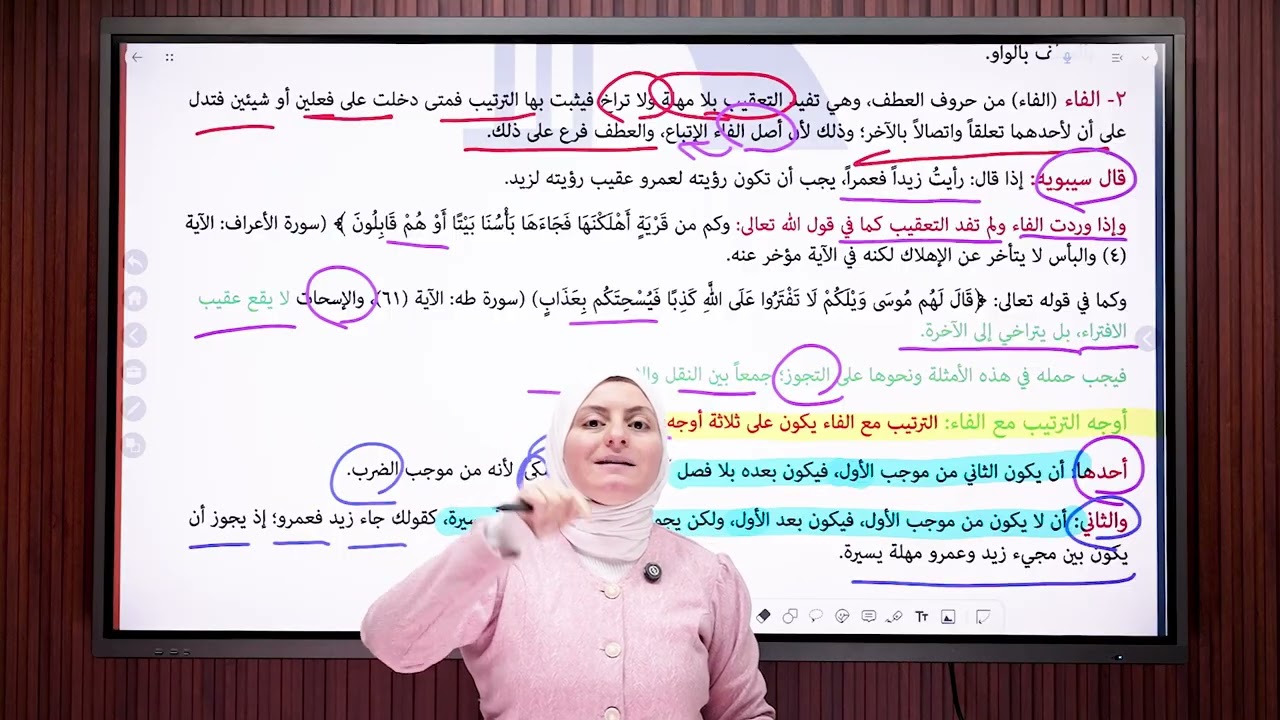 بالواو.
٢- الفاء (الفاء) من حروف العطف، وهي تفيد التعقيب بلا مهلة ولا تراخ فيثبت بها الترتيب فمتى دخلت على فعلين أو شيئين فتدل
على أن لأحدهما تعلقاً واتصالاً بالآخر؛ وذلك لأن أصل الفاء الإتباع، والعطف فرع على ذلك.
قال سيبويه: إذا قال: رأيتُ زيداً فعمراً، يجب أن تكون رؤيته لعمرو عقيب رؤيته لزيد.
وإذا وردت الفاء ولم تفد التعقيب كما في قول الله تعالى: وكم من قَرْيَةٍ أَهْلَكْنَهَا فَجَاءَهَا بَأْسُنَا بَيْتًا أَوْ هُمْ قَابِلُونَ ﴾ (سورة الأعراف: الآية
(٤) والبأس لا يتأخر عن الإهلاك لكنه في الآية مؤخر عنه.
وكما في قوله تعالى: ﴿قَالَ لَهُم مُوسَى وَيْلَكُمْ لَا تَفْتَرُوا عَلَى اللَّهِ كَذِبًا فَيُسْحِتَكُم بِعَذَابٍ) (سورة طه: الآية (٦١)، والإسحات لا يقع عقيب
الافتراء، بل يتراخي إلى الآخرة.
فيجب حمله في هذه الأمثلة ونحوها على التجوز؛ جمعاً بين النقل
أوجه الترتيب مع الفاء: الترتيب مع الفاء يكون على ثلاثة أوجه
أحدها: أن يكون الثاني من موجب الأول، فيكون بعده بلا فصل لأنه من موجب الضرب.
والثاني: أن لا يكون من موجب الأول، فيكون بعد الأول، ولكن كقولك جاء زيد فعمرو؛ إذ يجوز أن
يكون بين مجيء زيد وعمرو مهلة يسيرة.
Tт